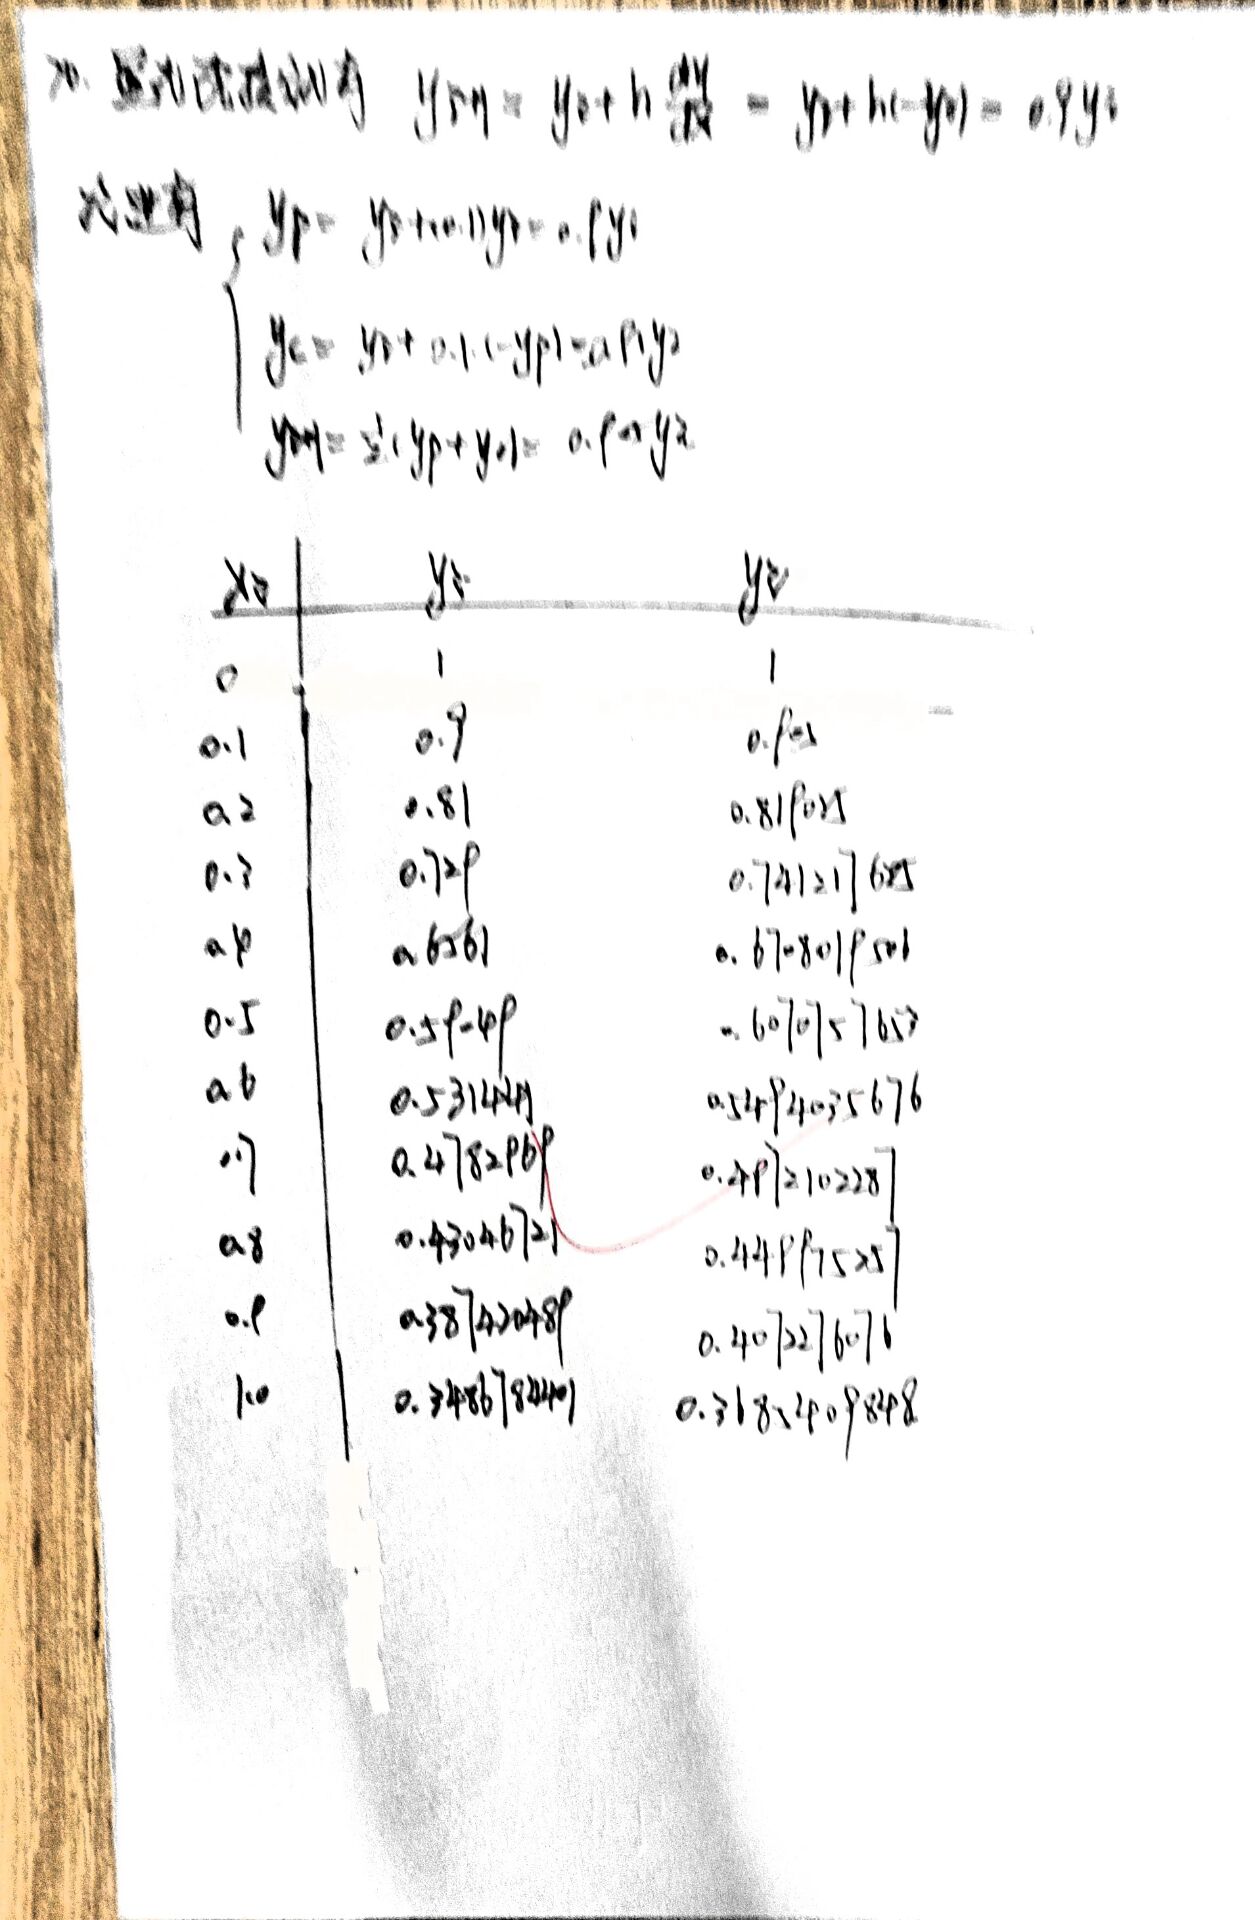 20. 显式法 有 yi+1 = yi + h dy/dx = yi + h(-yi) = 0.9yi
改进有 { yp = yi + (-0.1)yi = 0.9yi
yc = yi + 0.1·(-yp) = 0.91yi
yi+1 = ½(yp + yc) = 0.905yi
xi yi yi
0 1 1
0.1 0.9 0.905
0.2 0.81 0.819025
0.3 0.729 0.741217625
0.4 0.6561 0.6708019506
0.5 0.59049 0.6070757653
0.6 0.531441 0.5494035676
0.7 0.4782969 0.4972102287
0.8 0.43046721 0.449975257
0.9 0.387420489 0.4072276076
1.0 0.3486784401 0.3685409848